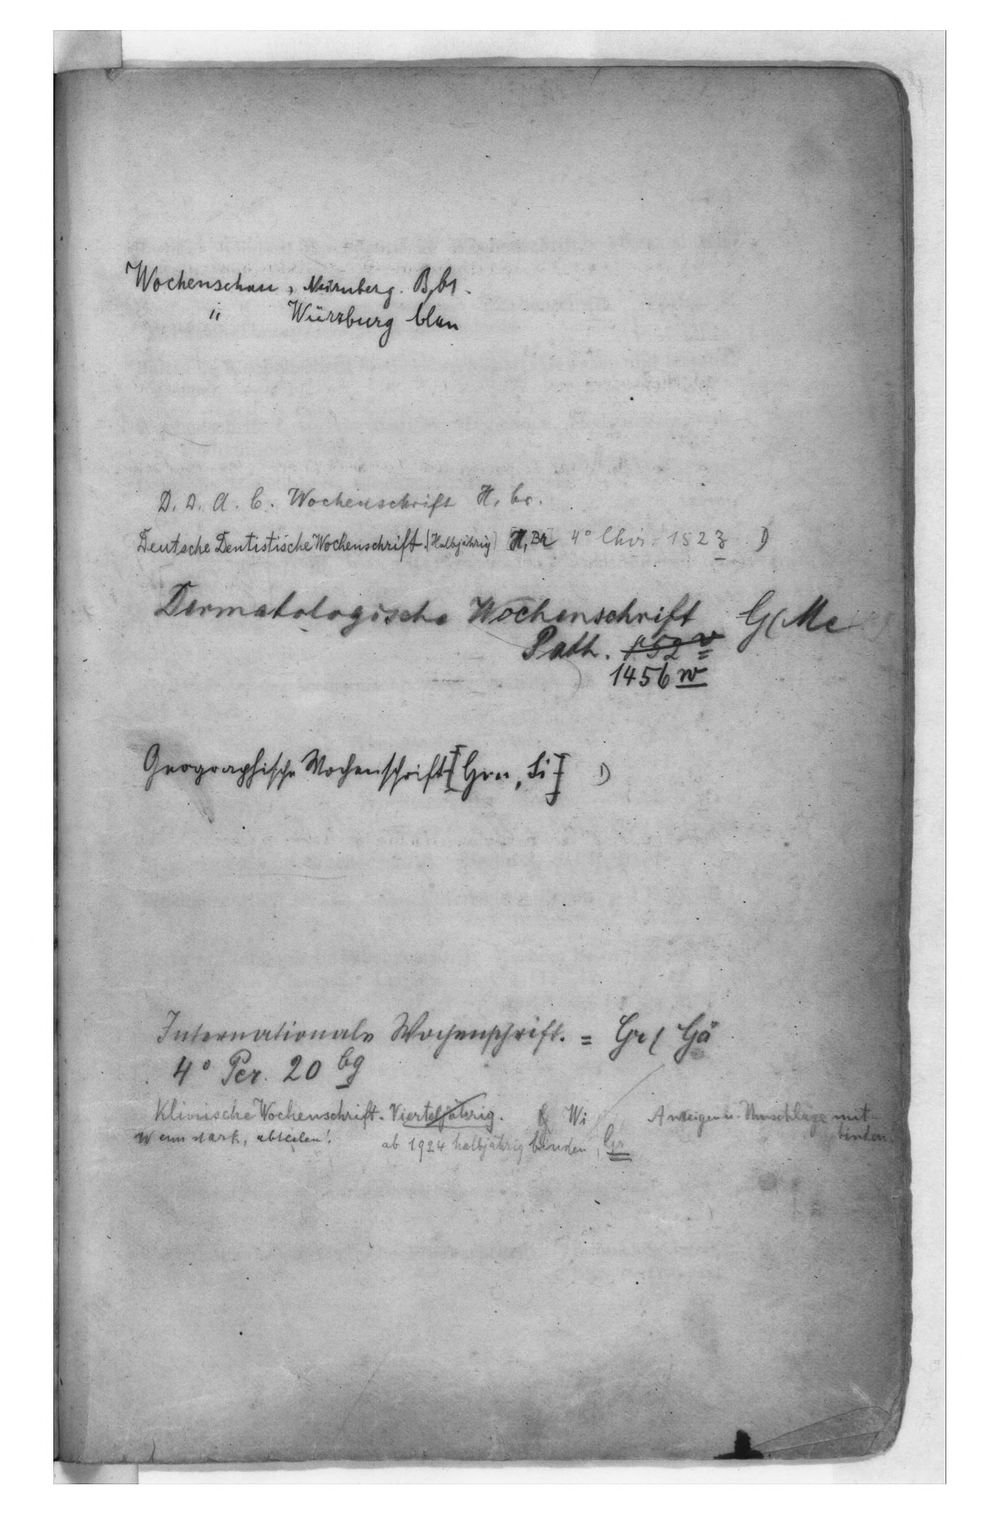 Wochenschau, Nürnberg. B, br.
" Würzburg blau
D. D. A. C. Wochenschrift H, br.
Deutsche Dentistische Wochenschrift. (Halbjährig) H, Br 4° Chir. 1523 D
Dermatologische Wochenschrift G( Me
Path. 1452 v
1456 w
Geographische Wochenschrift [Grn, Si] D
Internationale Wochenschrift. = Gr( Gä
4° Per. 20 bg
Klinische Wochenschrift. Vierteljährig. & Wi Anzeigen u. Umschläge mit-
Wenn stark, abteilen! ab 1924 halbjährig binden, Gr binden